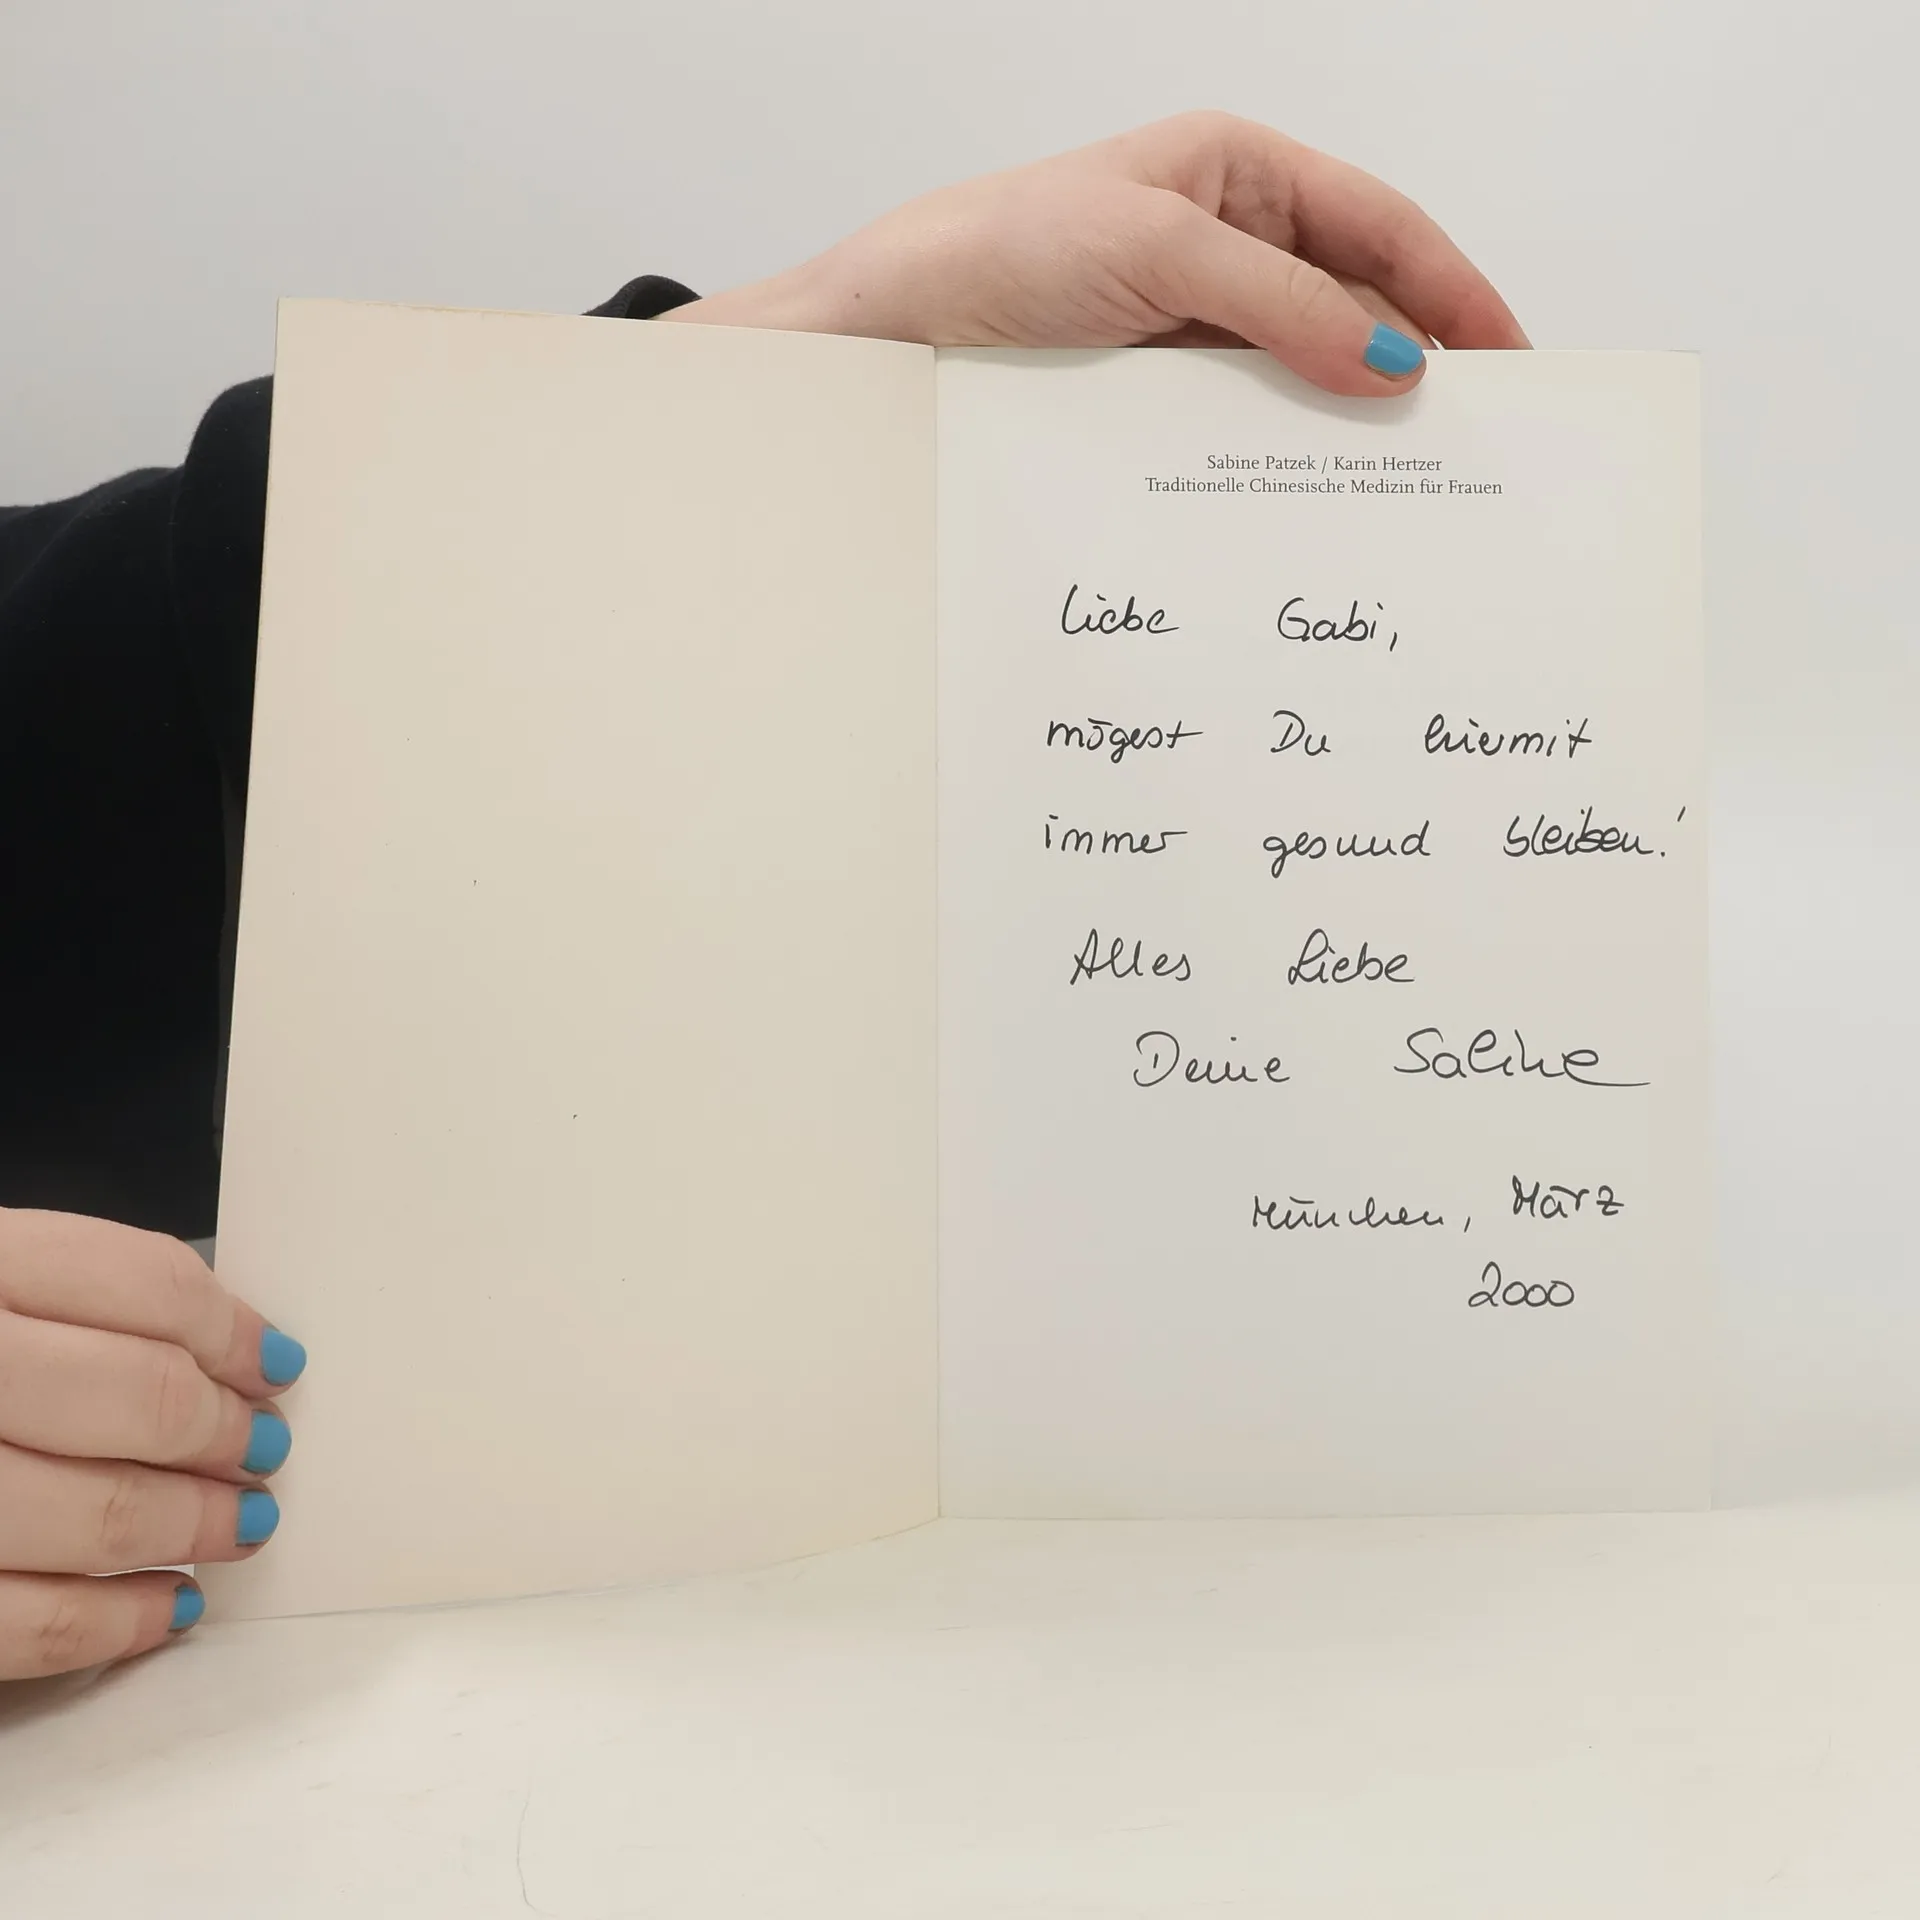 Sabine Patzek / Karin Hertzer
Traditionelle Chinesische Medizin für Frauen
Liebe Gabi,
mögest Du hiermit
immer gesund bleiben!
Alles Liebe
Deine Sabine
München, März
2000